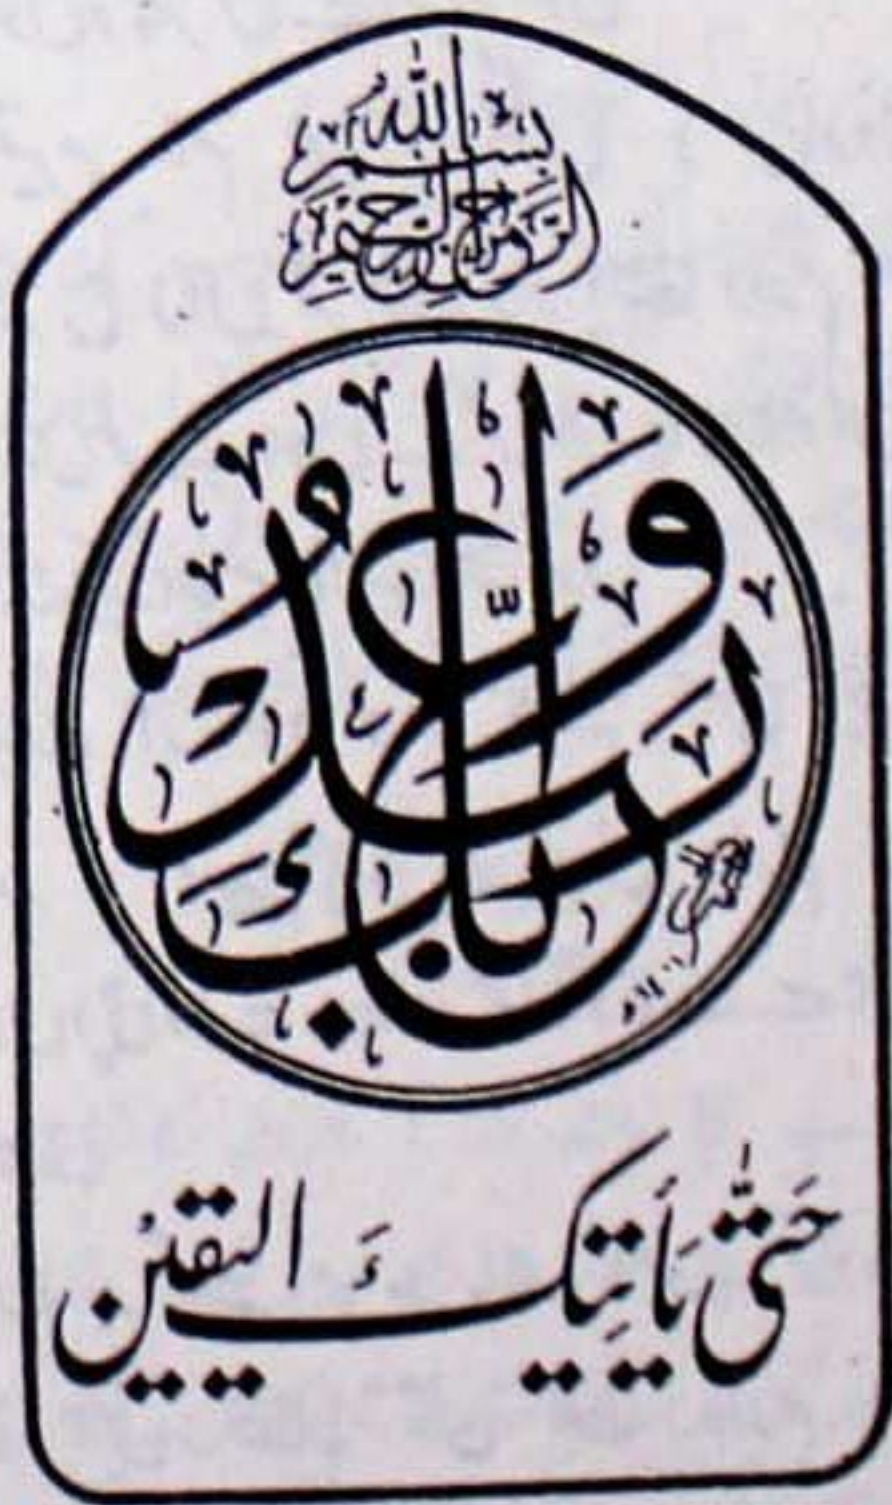 بِسْمِ اللهِ
الرَّحْمٰنِ الرَّحِيْمِ
وَاعْبُدْ رَبَّكَ
حَتّٰى يَأْتِيَكَ الْيَقِيْنُ